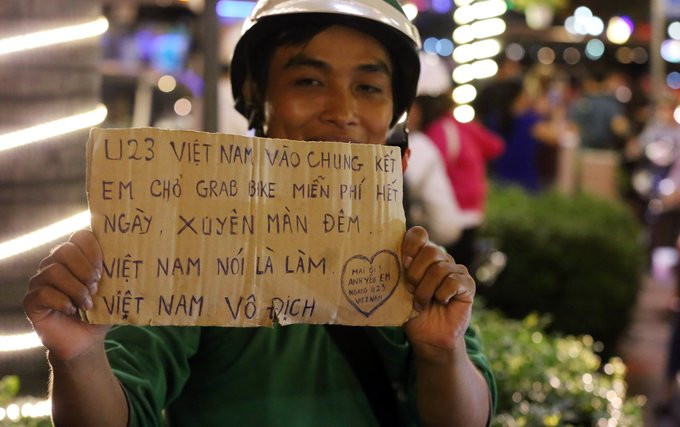 U23 VIỆT NAM VÀO CHUNG KẾT
EM CHỞ GRAB BIKE MIỄN PHÍ HẾT
NGÀY. XUYÊN MÀN ĐÊM.
VIỆT NAM NÓI LÀ LÀM.
VIỆT NAM VÔ ĐỊCH
MAI ơi!
ANH YÊU EM
NGANG U23
VIETNAM